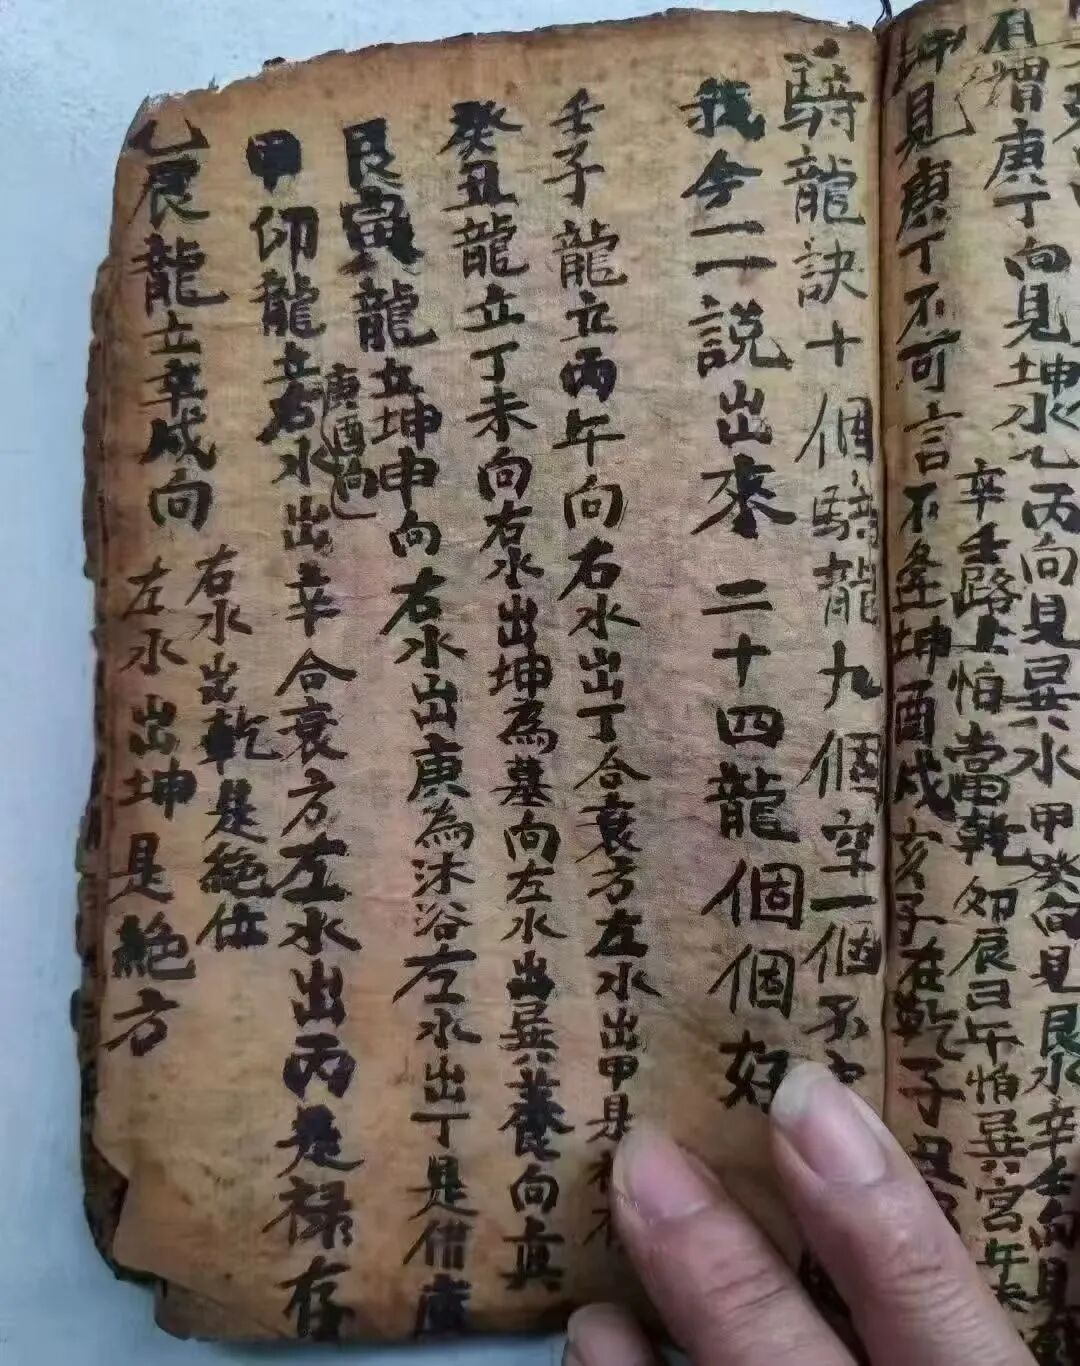 有增庚丁向見坤水乙丙向見巽水甲癸向見艮水辛壬向見
辛壬路上怕當乾卯辰巳午怕巽宮午未
卯見庚丁不可言不逢坤酉戌亥子在乾子丑
騎龍訣十個騎龍九個空一個不
我今一一說出來二十四龍個個好
壬子龍立丙午向右水出丁合衰方左水出甲是
癸丑龍立丁未向右水出坤為墓向左水出巽養向真
艮寅龍立坤申向右水出庚為沐浴左水出丁是借庫
庚酉向
甲卯龍立右水出辛合衰方左水出丙是祿存
乙辰龍立辛戌向
右水出乾是絕位
左水出坤是絕方